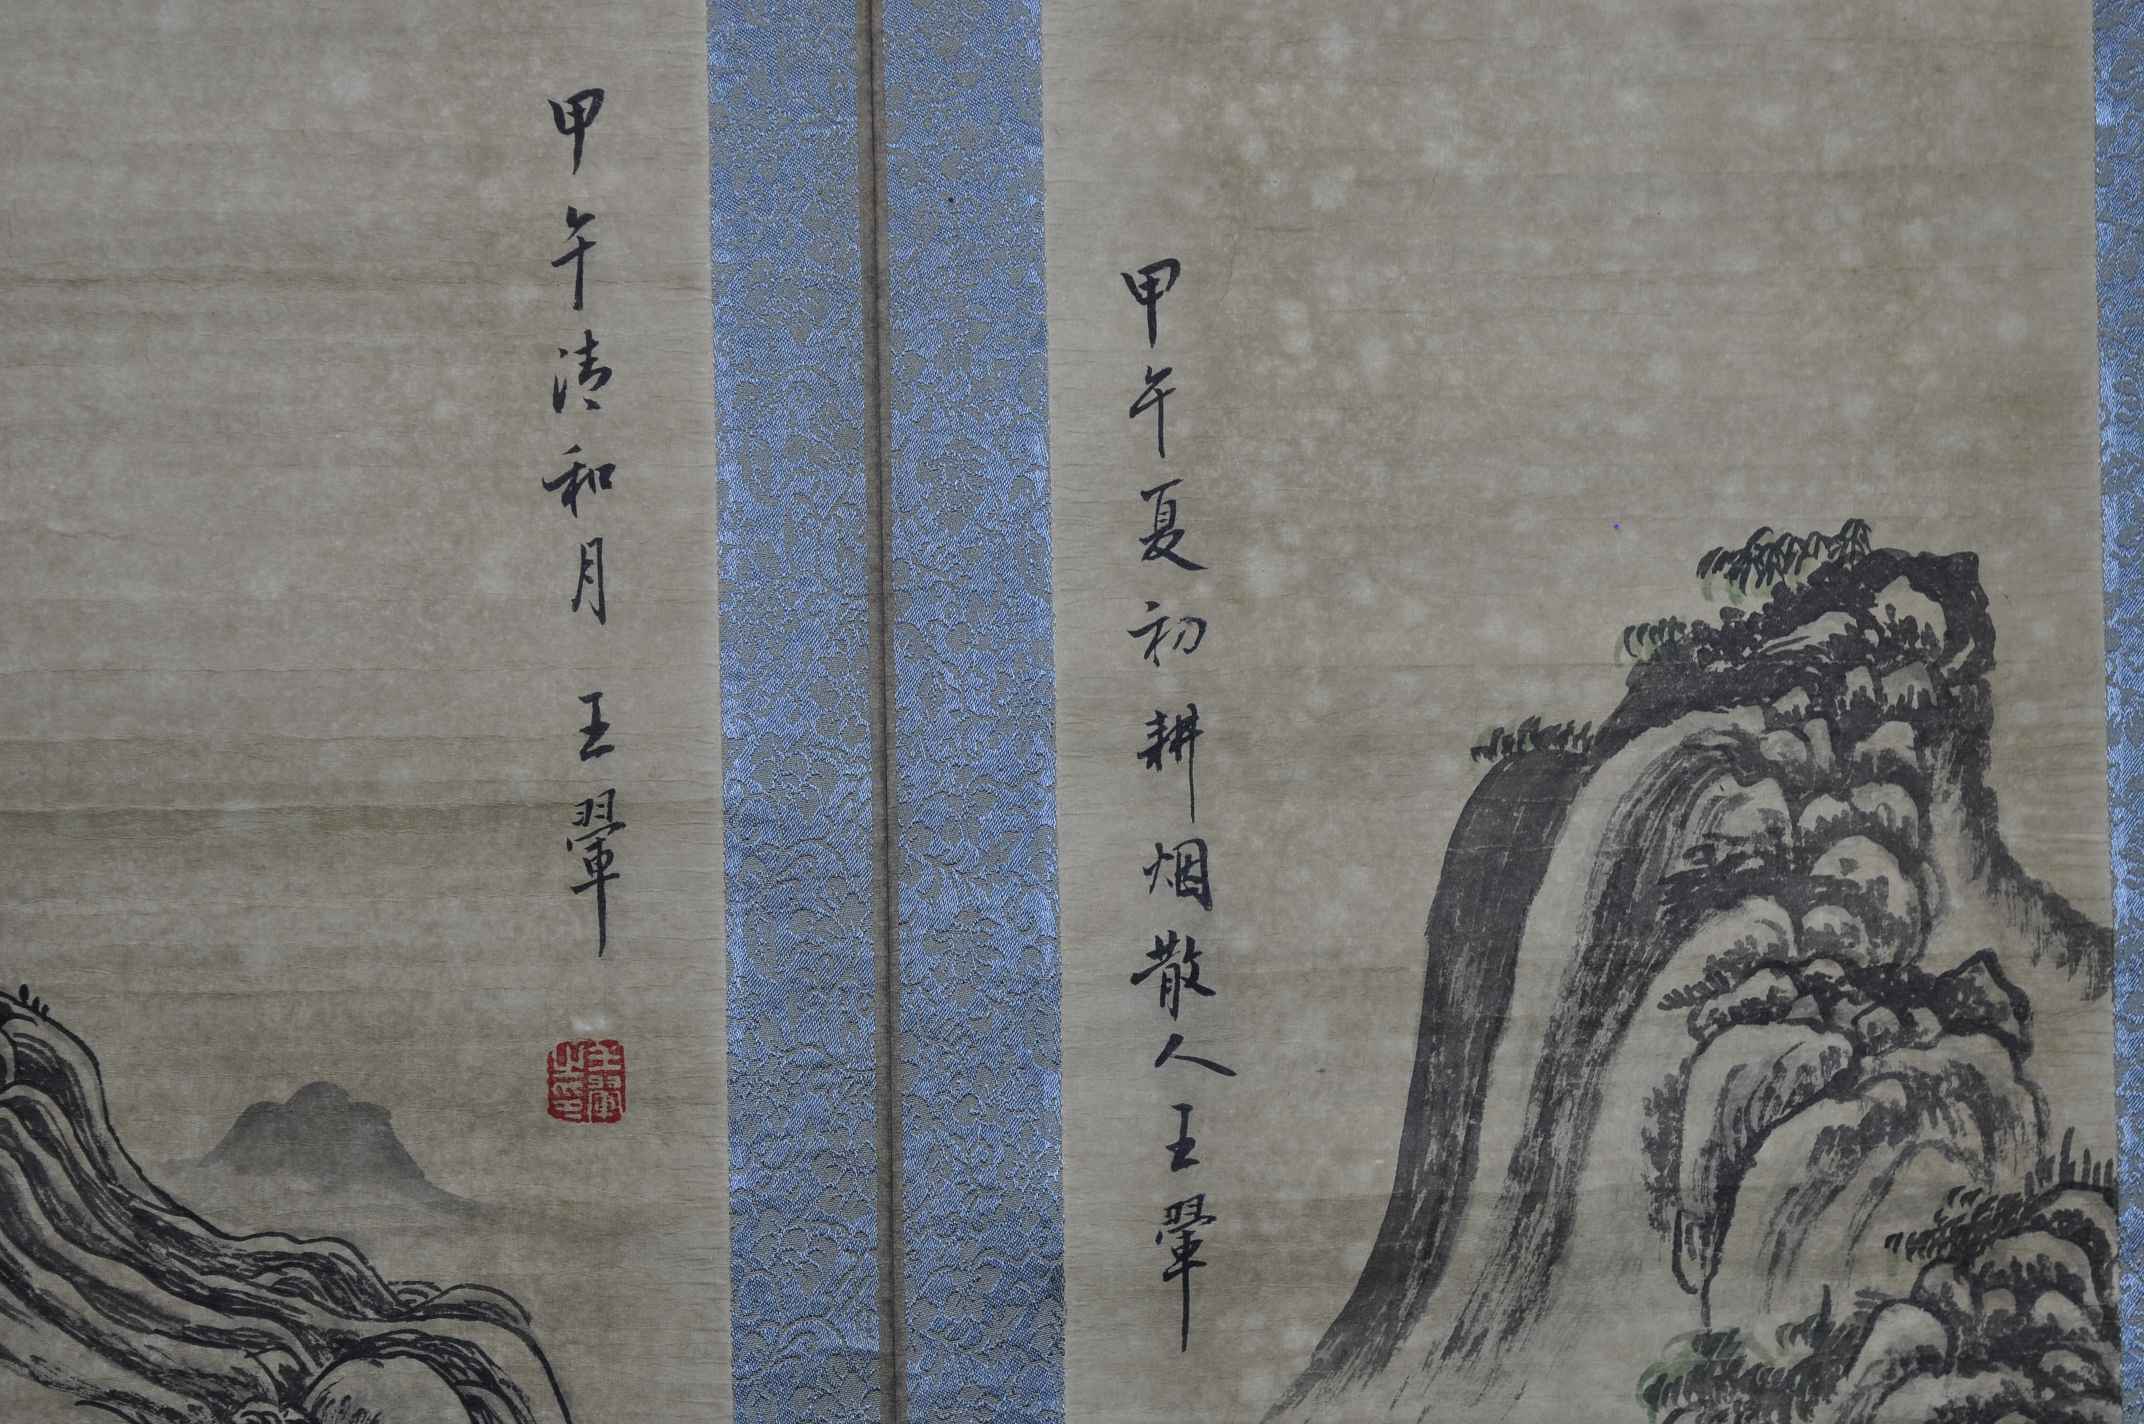 甲午夏初耕烟散人王翚
甲午清和月 王翚
王翚之印